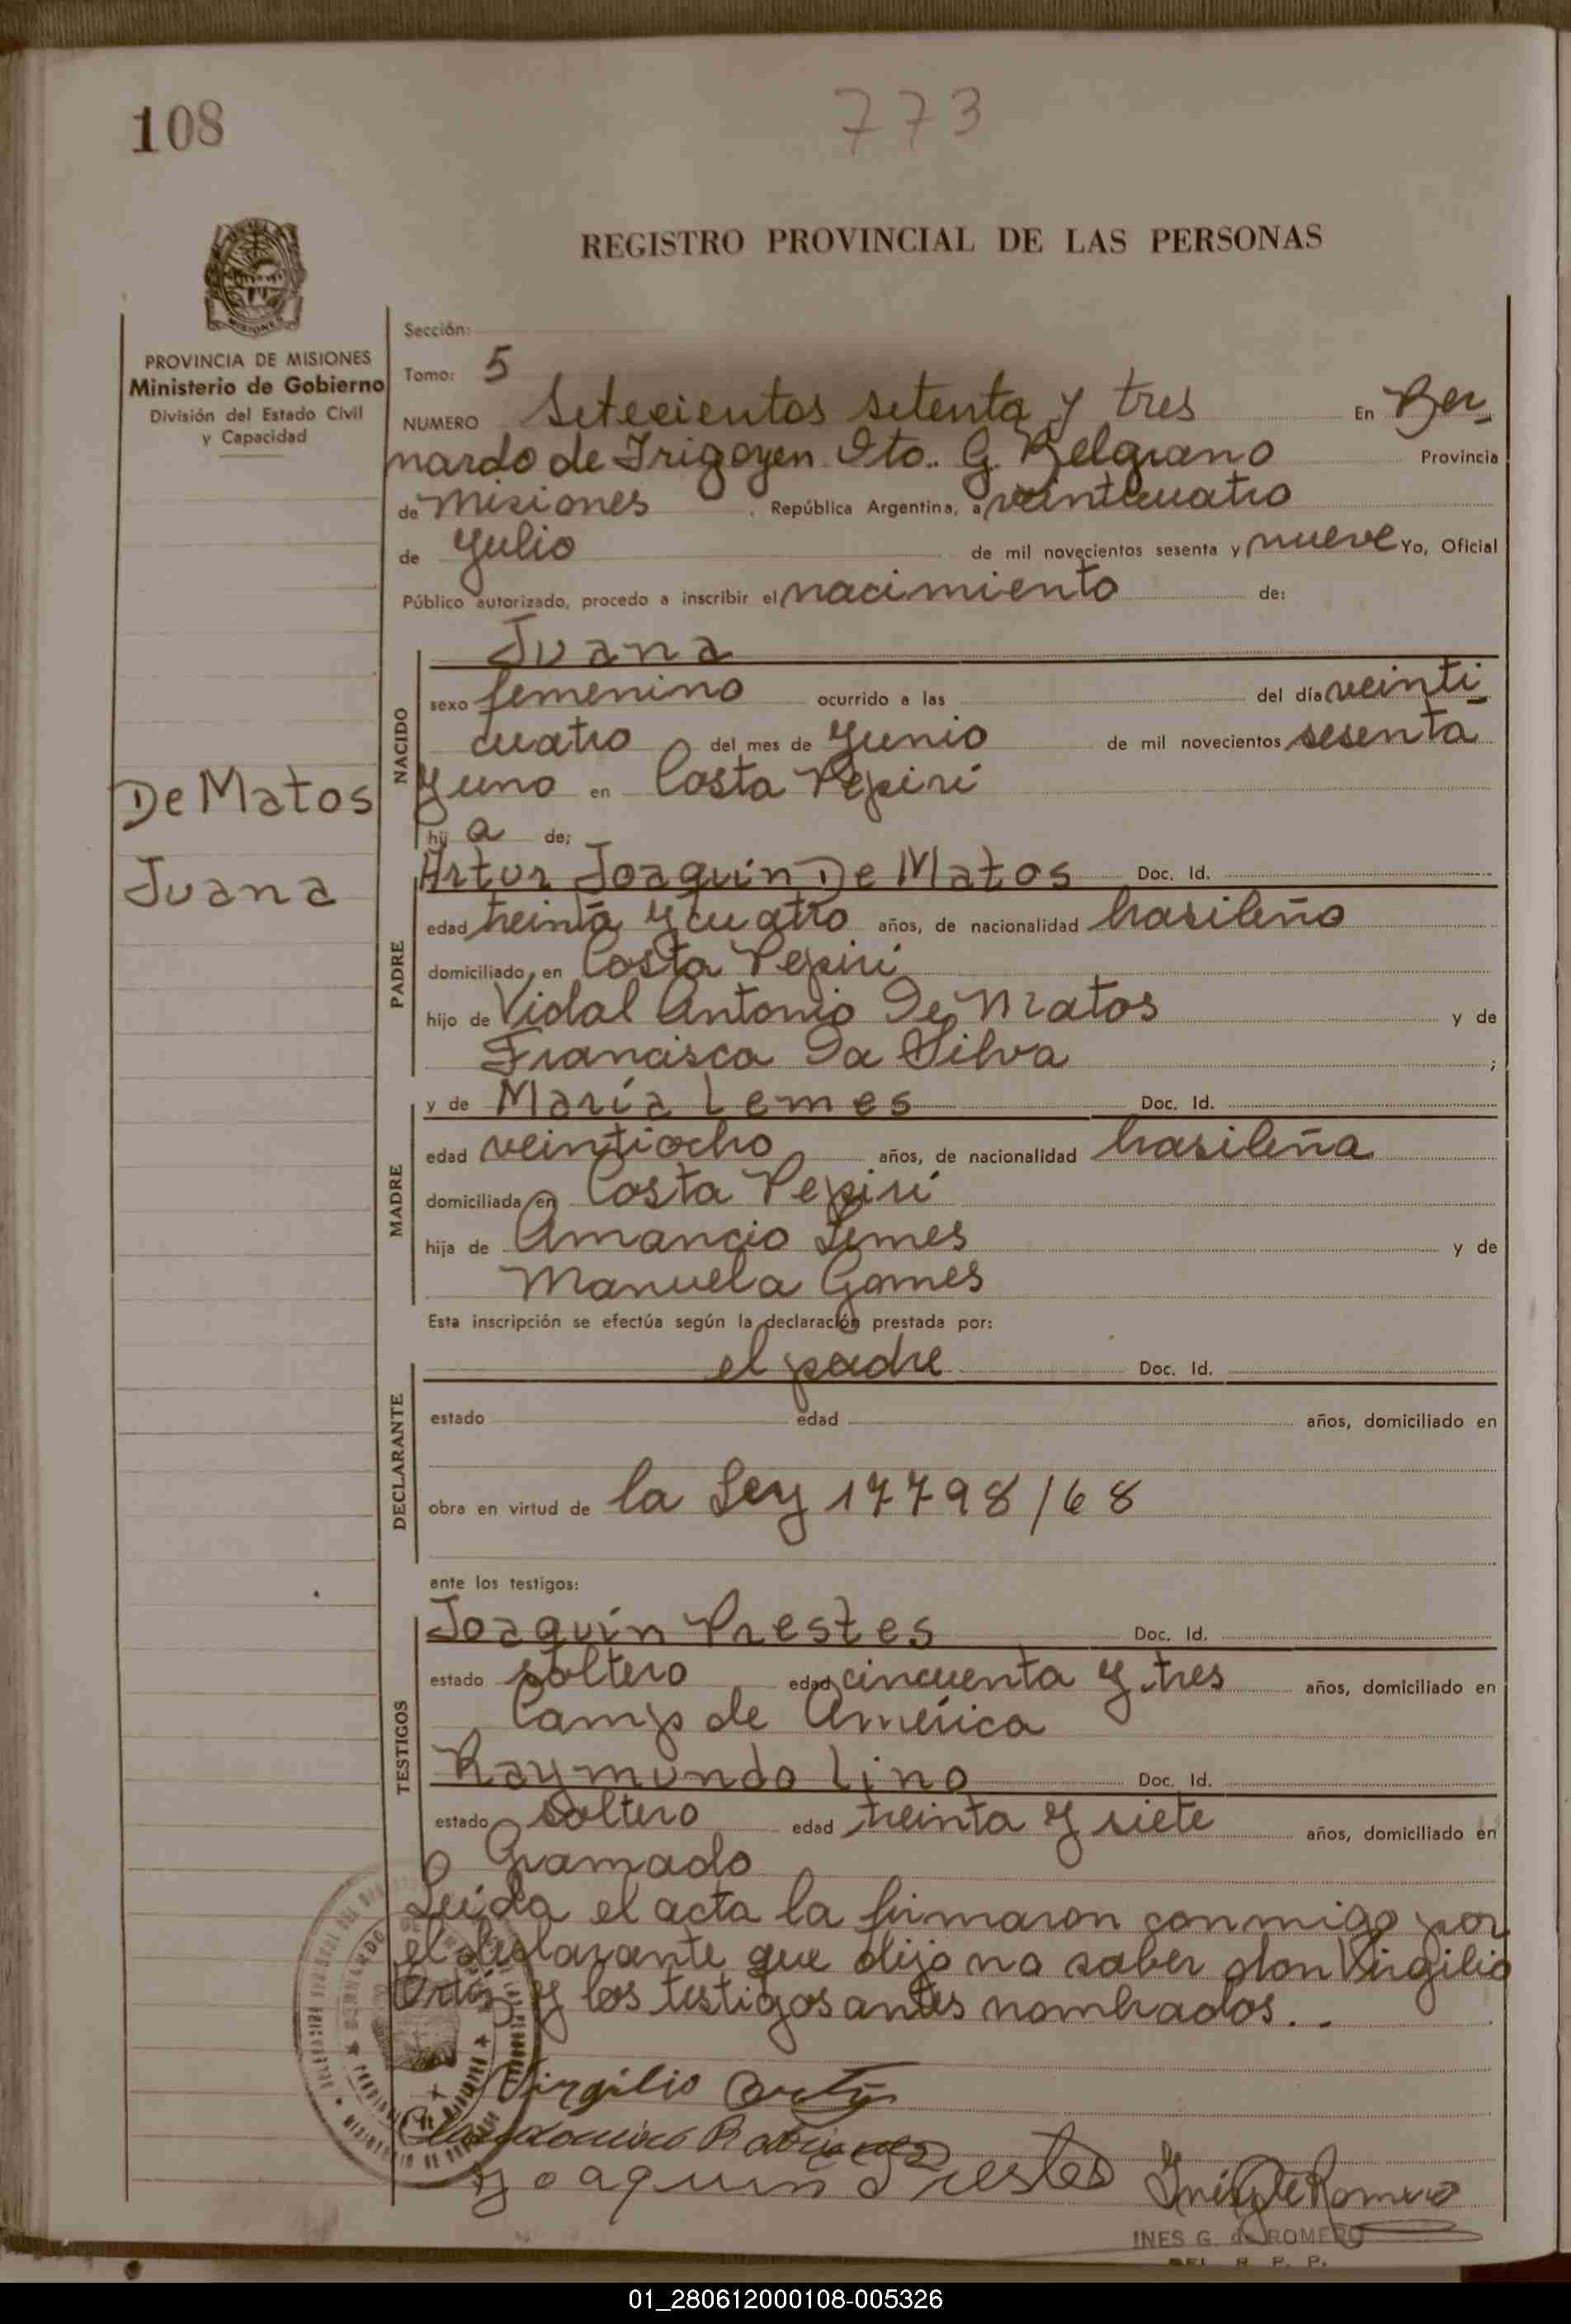 108
773
REGISTRO PROVINCIAL DE LAS PERSONAS
PROVINCIA DE MISIONES
Ministerio de Gobierno
División del Estado Civil
y Capacidad
Sección:
Tomo: 5
NUMERO Setecientos setenta y tres En Ber
nardo de Irigoyen Dto. G. Belgrano Provincia
de Misiones , República Argentina, a veinticuatro
de Julio de mil novecientos sesenta y nueve Yo, Oficial
Público autorizado, procedo a inscribir el nacimiento de:
Juana
NACIDO
sexo femenino ocurrido a las del día veinti
cuatro del mes de Junio de mil novecientos sesenta
y uno en Costa Pepirí
De Matos
Juana
hij a de;
Artur Joaquin De Matos Doc. Id.
PADRE
edad treinta y cuatro años, de nacionalidad brasileño
domiciliado en Costa Pepirí
hijo de Vidal Antonio De Matos y de
Francisca Da Silva ;
y de María Lemes Doc. Id.
MADRE
edad veintiocho años, de nacionalidad brasileña
domiciliada en Costa Pepirí
hija de Amancio Lemes y de
Manuela Gomes
Esta inscripción se efectúa según la declaración prestada por:
el padre Doc. Id.
DECLARANTE
estado edad años, domiciliado en
obra en virtud de la Ley 17798/68
ante los testigos:
Joaquín Prestes Doc. Id.
TESTIGOS
estado soltero edad cincuenta y tres años, domiciliado en
Camp de América
Raymundo Lino Doc. Id.
estado soltero edad treinta y siete años, domiciliado en
Gramado
Leída el acta la firmaron conmigo por
el declarante que dijo no saber don Virgilio
Ortiz y los testigos antes nombrados..
Virgilio Ortiz
Joaquin Prestes
Inés G de Romero
INES G. de ROMERO
DEL. R. P. P.
01_280612000108-005326